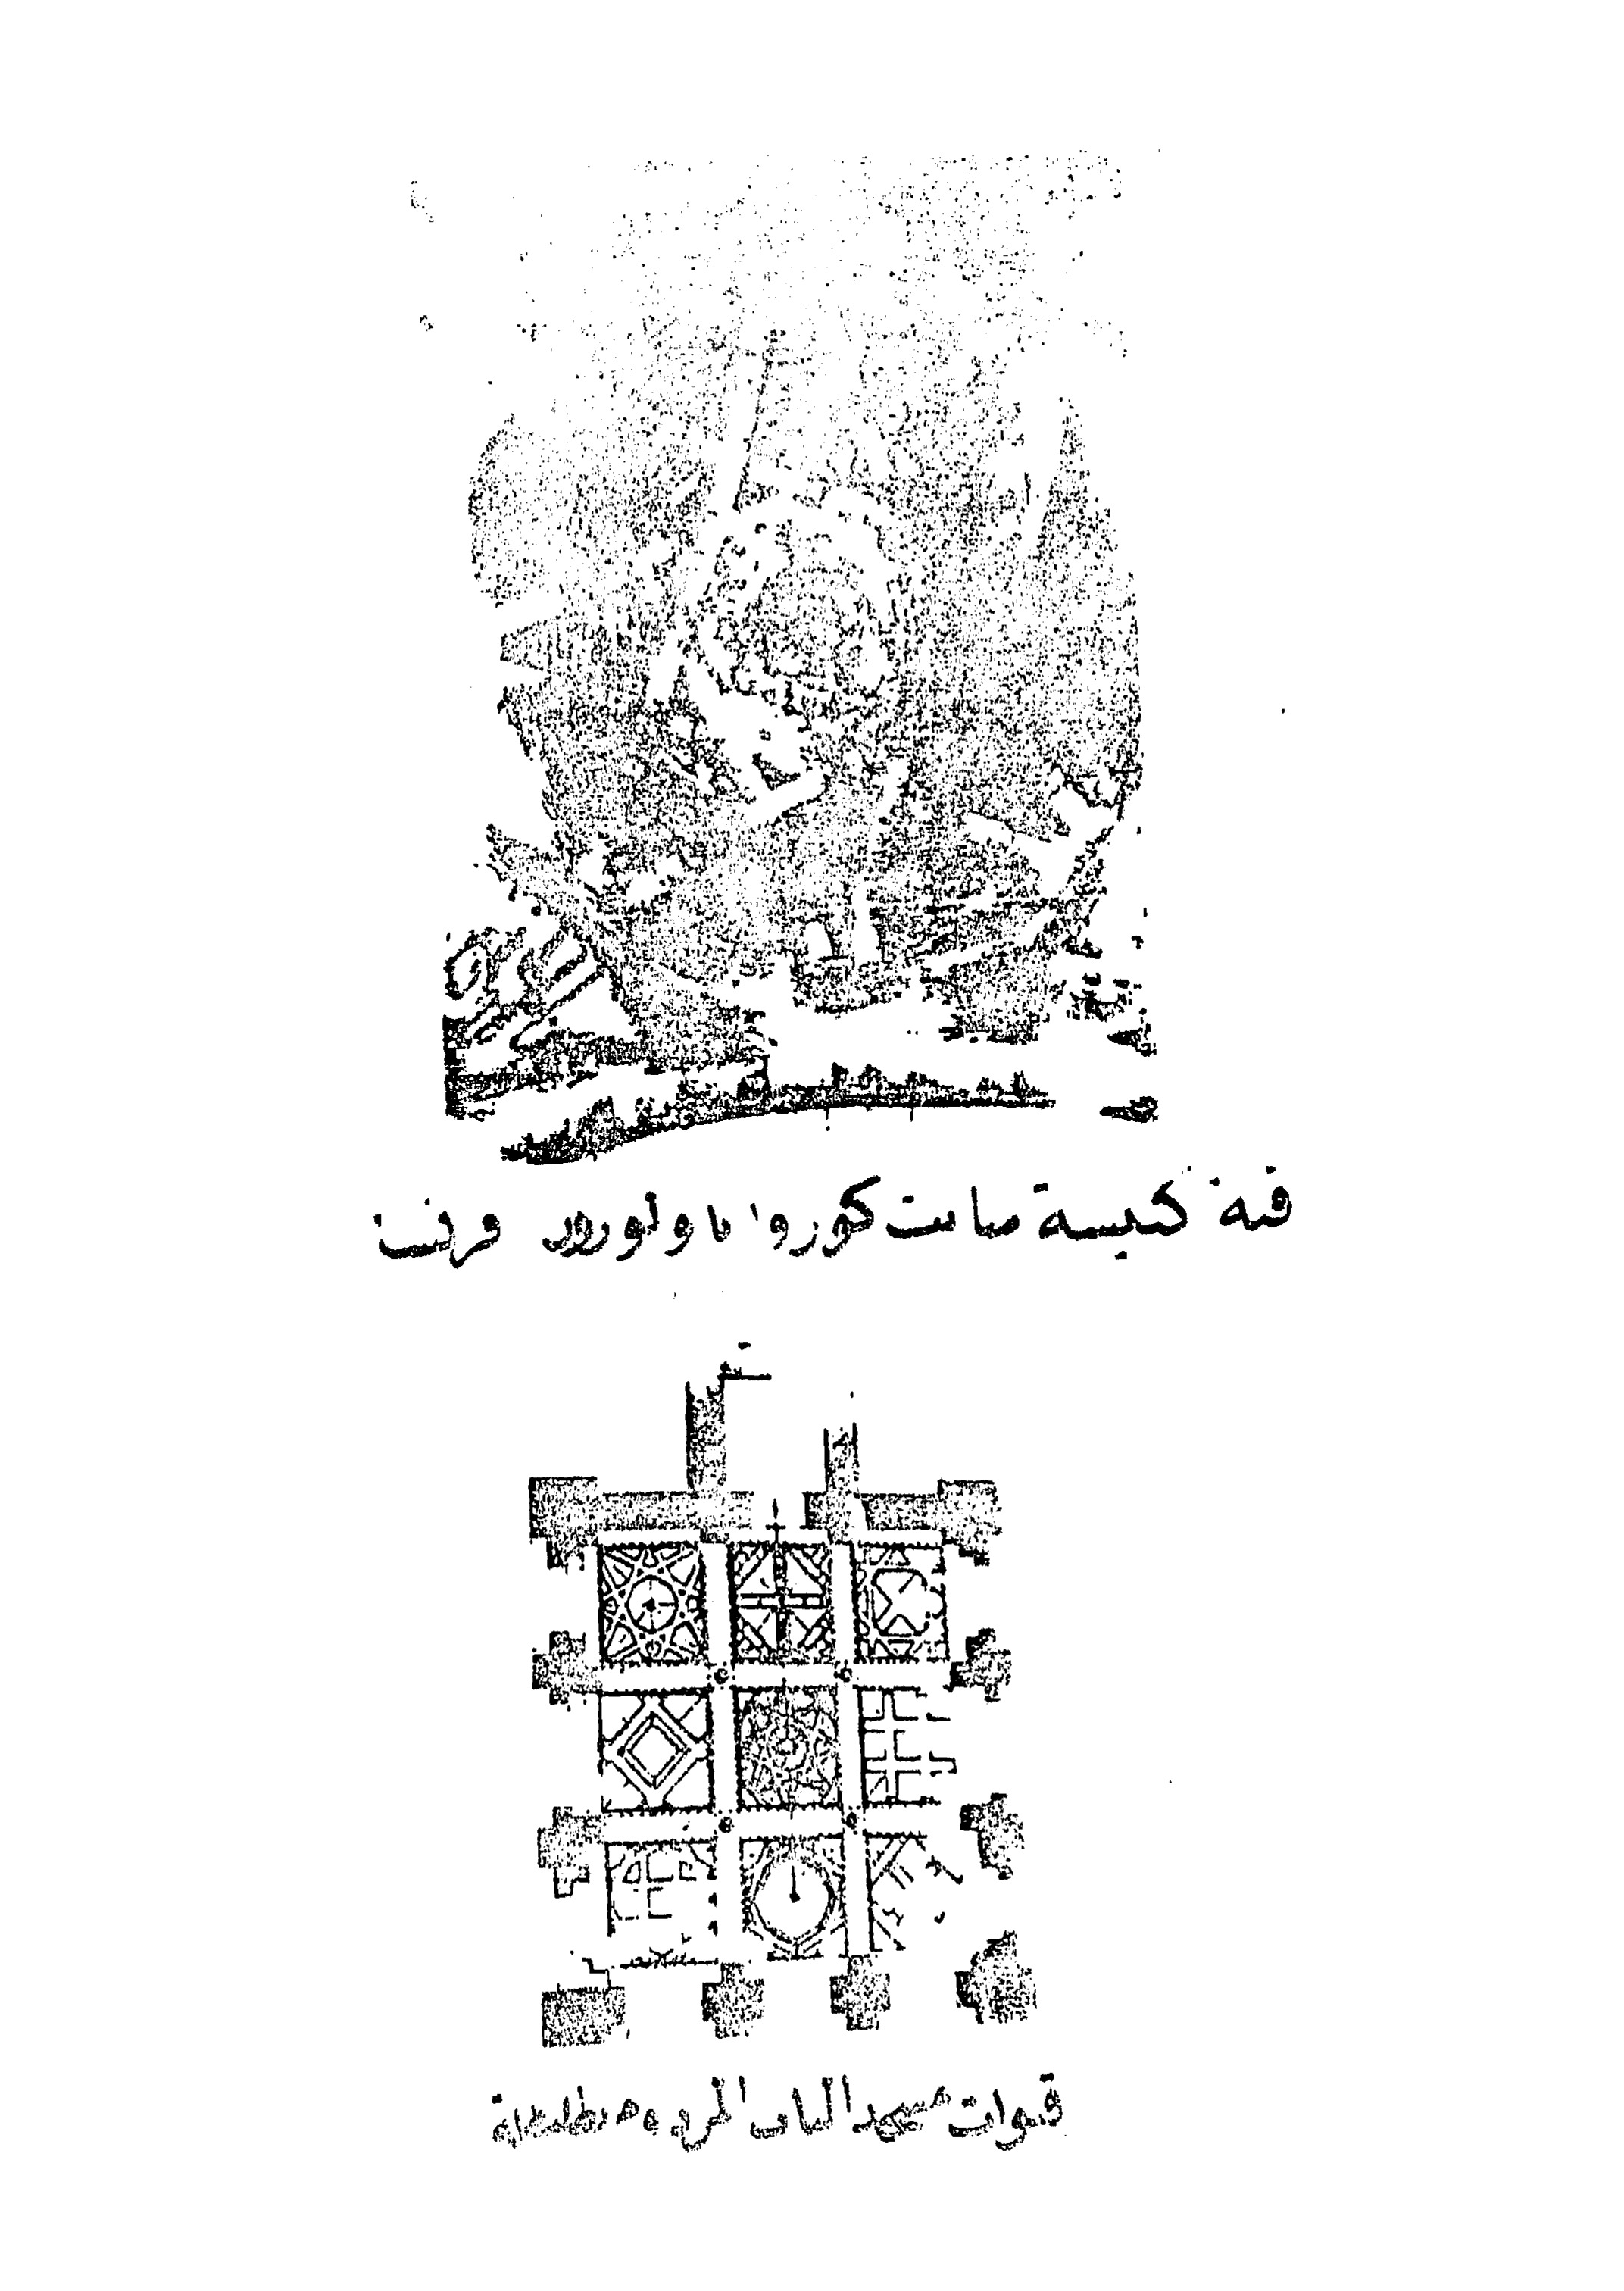 قبة كنيسة سانت كوروا با ولورون فرنسا
قبوات مسجد الباب المردوم بطليطلة